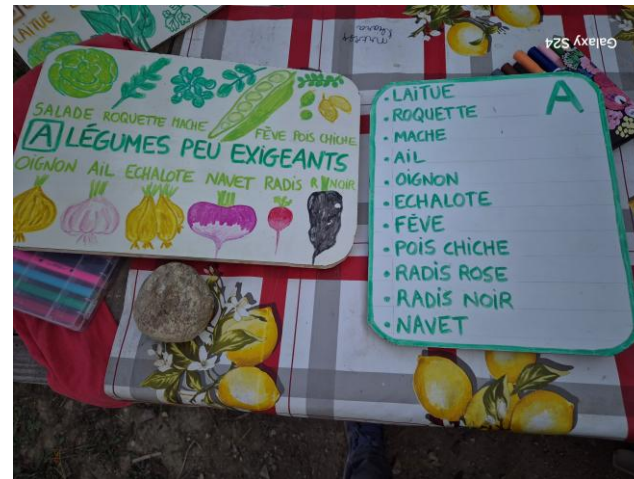 LAITUE
SALADE ROQUETTE MACHE
FÊVE POIS CHICHE
A LÉGUMES PEU EXIGEANTS
OIGNON AIL ECHALOTE NAVET RADIS R NOIR
A
• LAITUE
• ROQUETTE
• MACHE
• AIL
• OIGNON
• ECHALOTE
• FÊVE
• POIS CHICHE
• RADIS ROSE
• RADIS NOIR
• NAVET
Galaxy S24